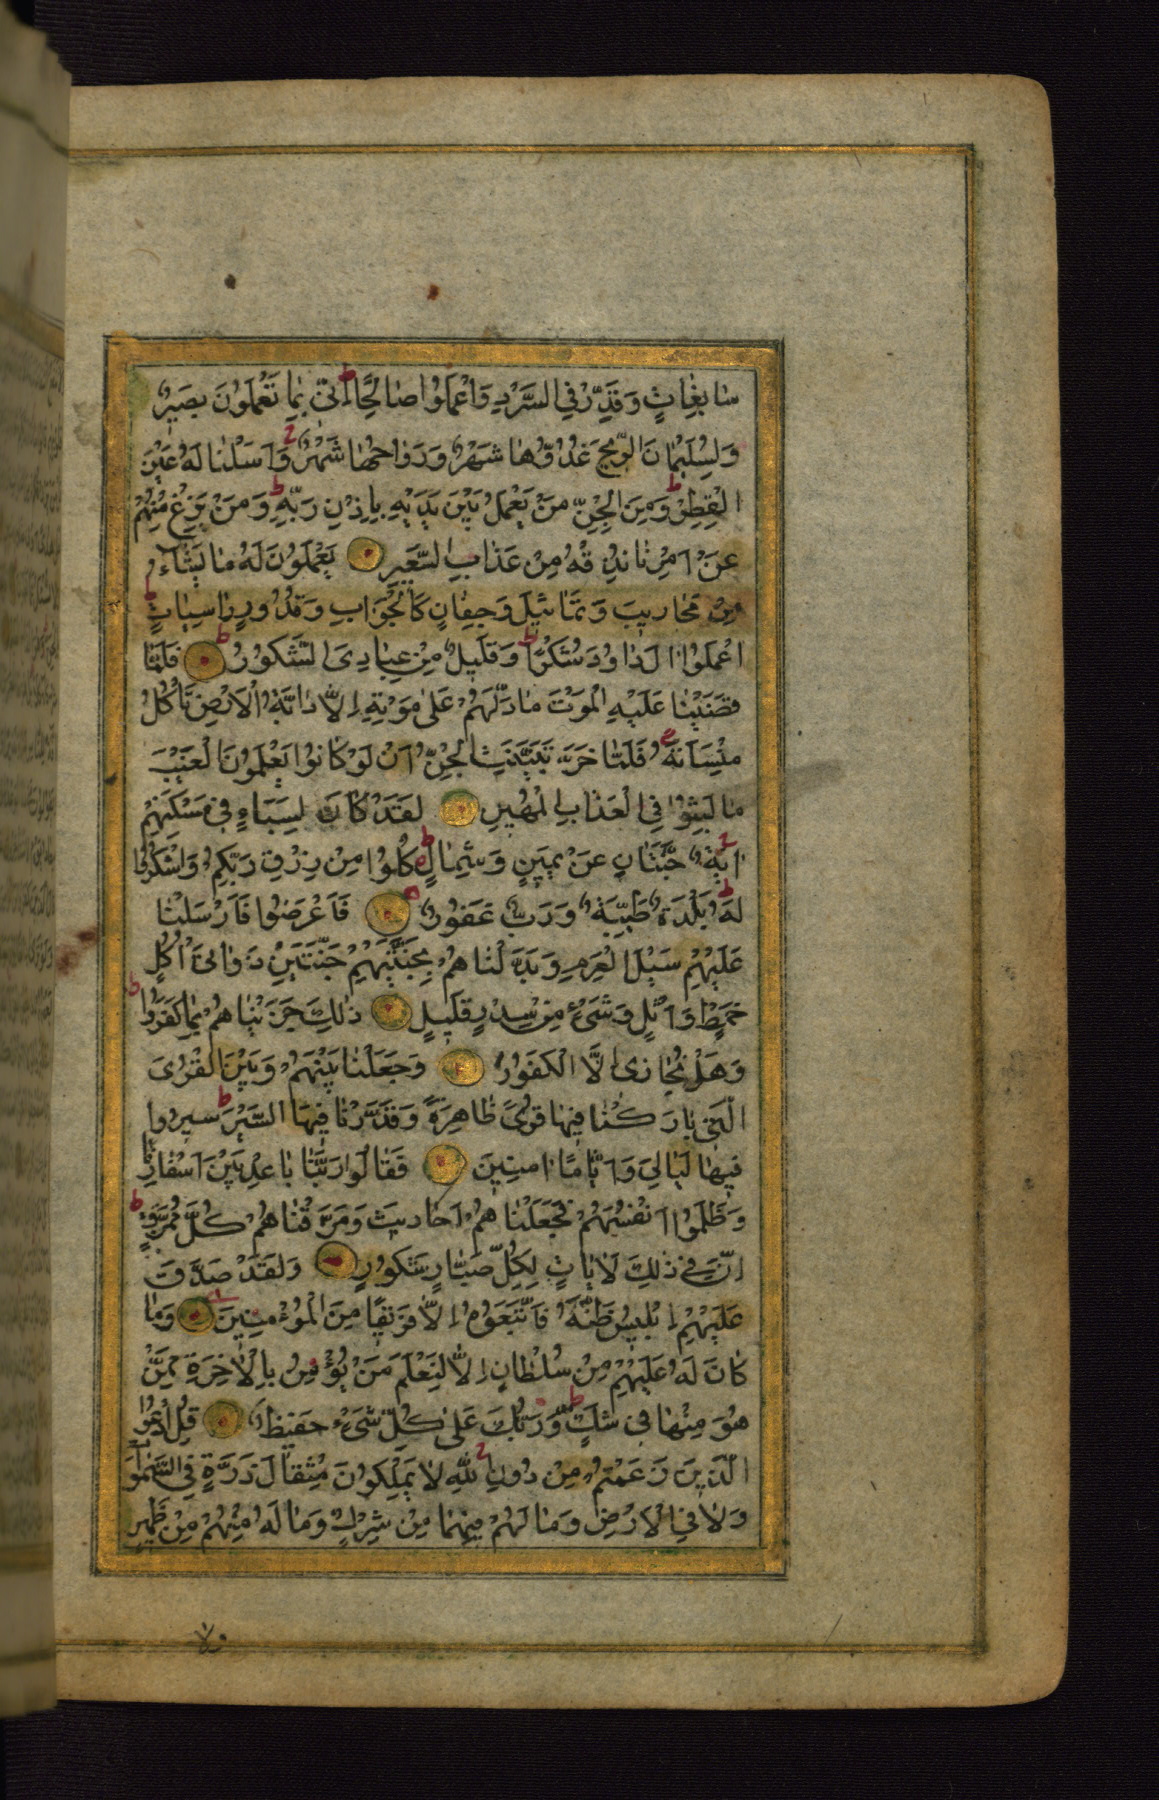 سَابِغَاتٍ وَقَدِّرْ فِي السَّرْدِ وَاعْمَلُوا صَالِحًا ط اِنّي بِمَا تَعْمَلُونَ بَصِيرٌ
وَلِسُلَيْمَانَ الرِّيحَ غُدُوُّهَا شَهْرٌ وَرَوَاحُهَا شَهْرٌ ج وَاَسَلْنَا لَهُ عَيْنَ
الْقِطْرِ ط وَمِنَ الْجِنِّ مَنْ يَعْمَلُ بَيْنَ يَدَيْهِ بِاِذْنِ رَبِّهِ ط وَمَنْ يَزِغْ مِنْهُمْ
عَنْ اَمْرِنَا نُذِقْهُ مِنْ عَذَابِ السَّعِيرِ يَعْمَلُونَ لَهُ مَا يَشَاءُ
مِنْ مَحَارِيبَ وَتَمَاثِيلَ وَجِفَانٍ كَالْجَوَابِ وَقُدُورٍ رَاسِيَاتٍ ط
اعْمَلُوا الَ دَاوُدَ شُكْرًا ط وَقَلِيلٌ مِنْ عِبَادِيَ الشَّكُورُ ط فَلَمَّا
قَضَيْنَا عَلَيْهِ الْمَوْتَ مَا دَلَّهُمْ عَلَى مَوْتِهِ اِلَّا دَابَّةُ الْاَرْضِ تَأْكُلُ
مِنْسَاَتَهُ ج فَلَمَّا خَرَّ تَبَيَّنَتِ الْجِنُّ اَنْ لَوْ كَانُوا يَعْلَمُونَ الْغَيْبَ
مَا لَبِثُوا فِي الْعَذَابِ الْمُهِينِ لَقَدْ كَانَ لِسَبَاءٍ فِي مَسْكَنِهِمْ
اٰيَةٌ ج جَنَّتَانِ عَنْ يَمِينٍ وَشِمَالٍ ط كُلُوا مِنْ رِزْقِ رَبِّكُمْ وَاشْكُرُوا
لَهُ ط بَلْدَةٌ طَيِّبَةٌ وَرَبٌّ غَفُورٌ فَاَعْرَضُوا فَاَرْسَلْنَا
عَلَيْهِمْ سَيْلَ الْعَرِمِ وَبَدَّلْنَاهُمْ بِجَنَّتَيْهِمْ جَنَّتَيْنِ ذَوَاتَيْ اُكُلٍ
خَمْطٍ وَاَثْلٍ وَشَيْءٍ مِنْ سِدْرٍ قَلِيلٍ ذٰلِكَ جَزَيْنَاهُمْ بِمَا كَفَرُوا ط
وَهَلْ نُجَازِي اِلَّا الْكَفُورَ وَجَعَلْنَا بَيْنَهُمْ وَبَيْنَ الْقُرَى
الَّتِي بَارَكْنَا فِيهَا قُرًى ظَاهِرَةً وَقَدَّرْنَا فِيهَا السَّيْرَ ط سِيرُوا
فِيهَا لَيَالِيَ وَاَيَّامًا اٰمِنِينَ فَقَالُوا رَبَّنَا بَاعِدْ بَيْنَ اَسْفَارِنَا
وَظَلَمُوا اَنْفُسَهُمْ فَجَعَلْنَاهُمْ اَحَادِيثَ وَمَزَّقْنَاهُمْ كُلَّ مُمَزَّقٍ ط
اِنَّ فِي ذٰلِكَ لَاٰيَاتٍ لِكُلِّ صَبَّارٍ شَكُورٍ وَلَقَدْ صَدَّقَ
عَلَيْهِمْ اِبْلِيسُ ظَنَّهُ فَاتَّبَعُوهُ اِلَّا فَرِيقًا مِنَ الْمُؤْمِنِينَ وَمَا
كَانَ لَهُ عَلَيْهِمْ مِنْ سُلْطَانٍ اِلَّا لِنَعْلَمَ مَنْ يُؤْمِنُ بِالْاٰخِرَةِ مِمَّنْ
هُوَ مِنْهَا فِي شَكٍّ ط وَرَبُّكَ عَلَى كُلِّ شَيْءٍ حَفِيظٌ قُلِ ادْعُوا
الَّذِينَ زَعَمْتُمْ مِنْ دُونِ اللّٰهِ ج لَا يَمْلِكُونَ مِثْقَالَ ذَرَّةٍ فِي السَّمٰوَاتِ
وَلَا فِي الْاَرْضِ وَمَا لَهُمْ فِيهِمَا مِنْ شِرْكٍ وَمَا لَهُ مِنْهُمْ مِنْ ظَهِيرٍ